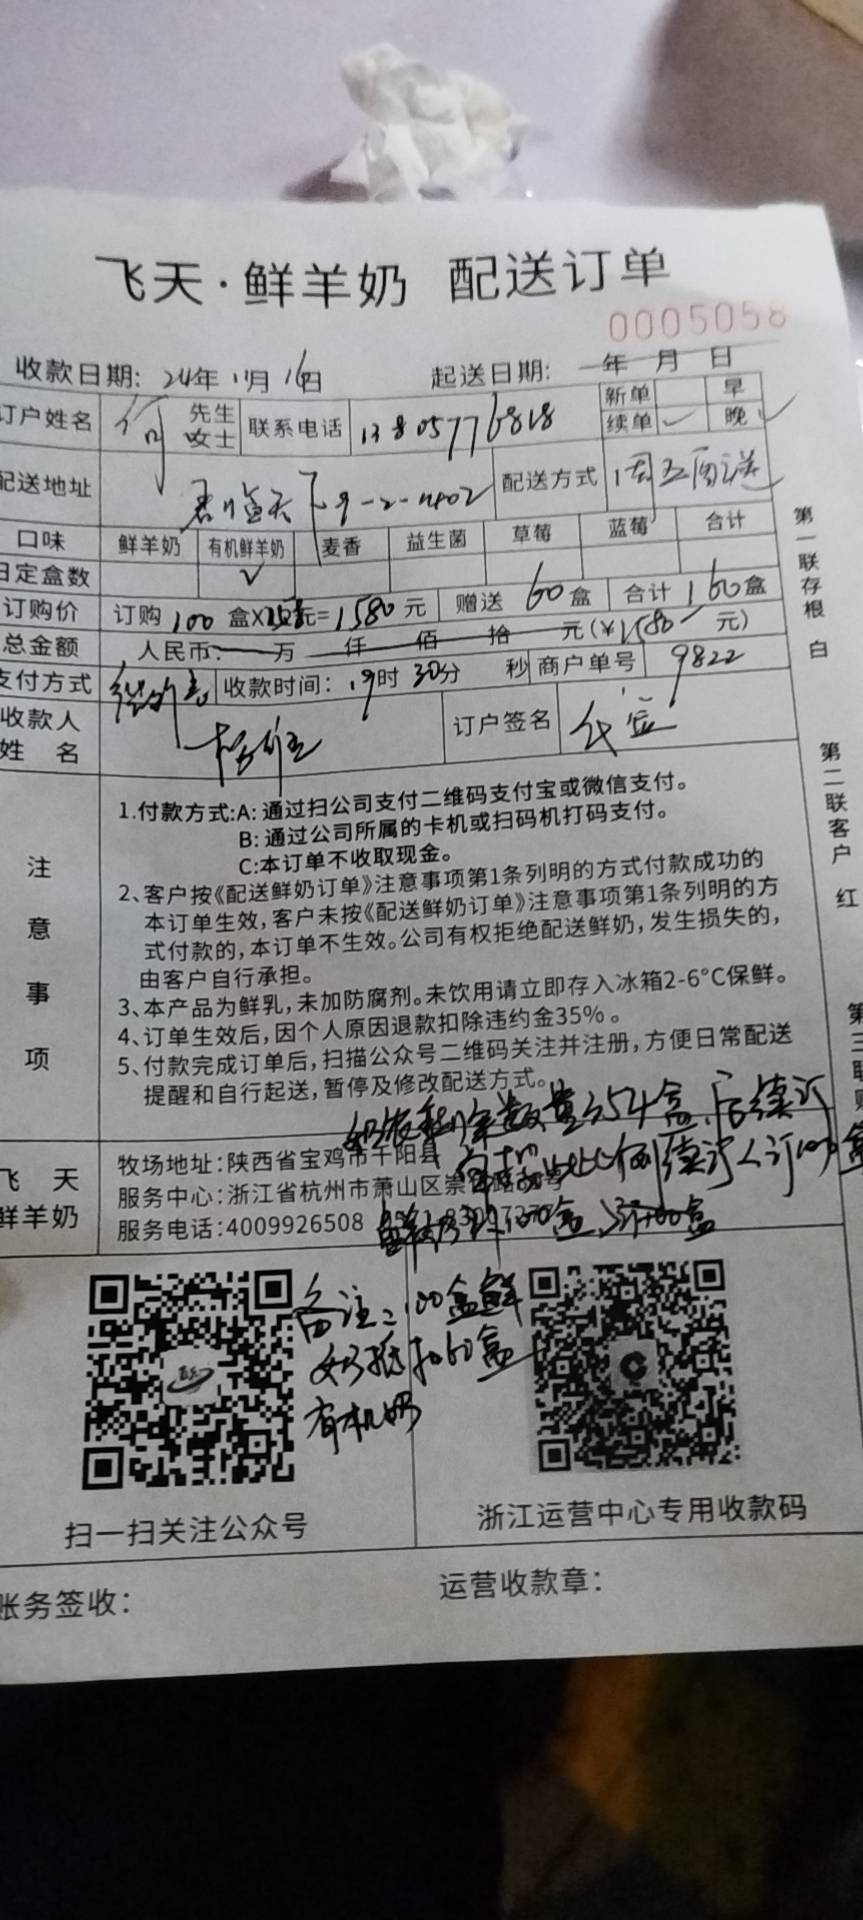 飞天·鲜羊奶 配送订单
0005058
收款日期: 24年11月16日 起送日期: 年 月 日
订户姓名 何 先生 女士 联系电话 13805776818 新单 早
续单 ✓ 晚 ✓
配送地址 天下9-2-1402 配送方式 1周五周送
口味 鲜羊奶 有机鲜羊奶 麦香 益生菌 草莓 蓝莓 合计
日定盒数 ✓
订购价 订购 100 盒X 元= 1580 元 赠送 60 盒 合计 160 盒
总金额 人民币: 万 仟 佰 拾 元(¥1580 元)
支付方式 收款时间: 19时 30分 秒 商户单号 9822
收款人 姓名 订户签名 代签
注意事项
1.付款方式:A: 通过扫公司支付二维码支付宝或微信支付。
B: 通过公司所属的卡机或扫码机打码支付。
C:本订单不收取现金。
2、客户按《配送鲜奶订单》注意事项第1条列明的方式付款成功的
本订单生效,客户未按《配送鲜奶订单》注意事项第1条列明的方
式付款的,本订单不生效。公司有权拒绝配送鲜奶,发生损失的,
由客户自行承担。
3、本产品为鲜乳,未加防腐剂。未饮用请立即存入冰箱2-6°C保鲜。
4、订单生效后,因个人原因退款扣除违约金35%。
5、付款完成订单后,扫描公众号二维码关注并注册,方便日常配送
提醒和自行起送,暂停及修改配送方式。
数量354盒,后续订
飞天鲜羊奶
牧场地址:陕西省宝鸡市千阳县
此比例续订 订100盒
服务中心:浙江省杭州市萧山区崇
服务电话:4009926508
100盒
备注:100盒鲜
奶抵扣60盒
有机奶
扫一扫关注公众号
浙江运营中心专用收款码
账务签收:
运营收款章:
第一联存根 白
第二联客户 红
第三联